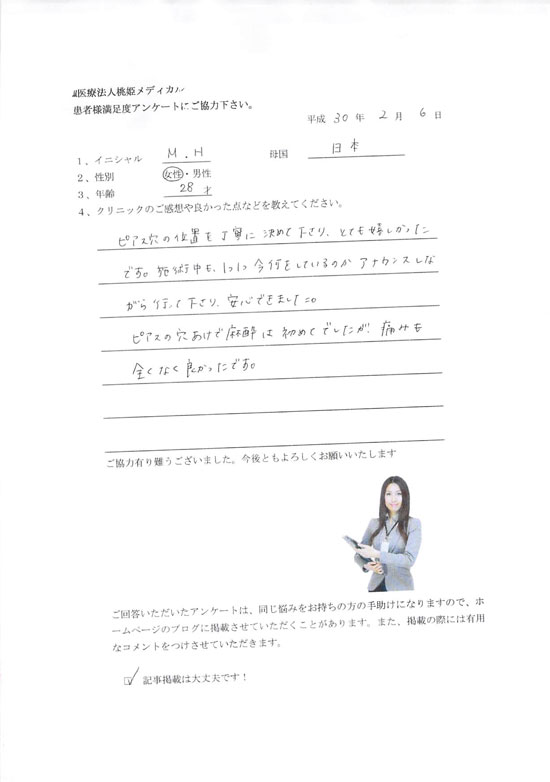 医療法人桃姫メディカル
患者様満足度アンケートにご協力下さい。
平成 30 年 2 月 6 日
1、イニシャル M.H 母国 日本
2、性別 女性・男性
3、年齢 28 才
4、クリニックのご感想や良かった点などを教えてください。
ピアス穴の位置も丁寧に決めて下さり、とても嬉しかった
です。施術中も、1つ1つ今何をしているのかアナウンスしな
がら行って下さり、安心できました。
ピアスの穴あけで麻酔は初めてでしたが、痛みも
全くなく良かったです。
ご協力有り難うございました。今後ともよろしくお願いいたします
ご回答いただいたアンケートは、同じ悩みをお持ちの方の手助けになりますので、ホ
ームページのブログに掲載させていただくことがあります。また、掲載の際には有用
なコメントをつけさせていただきます。
☑ 記事掲載は大丈夫です！